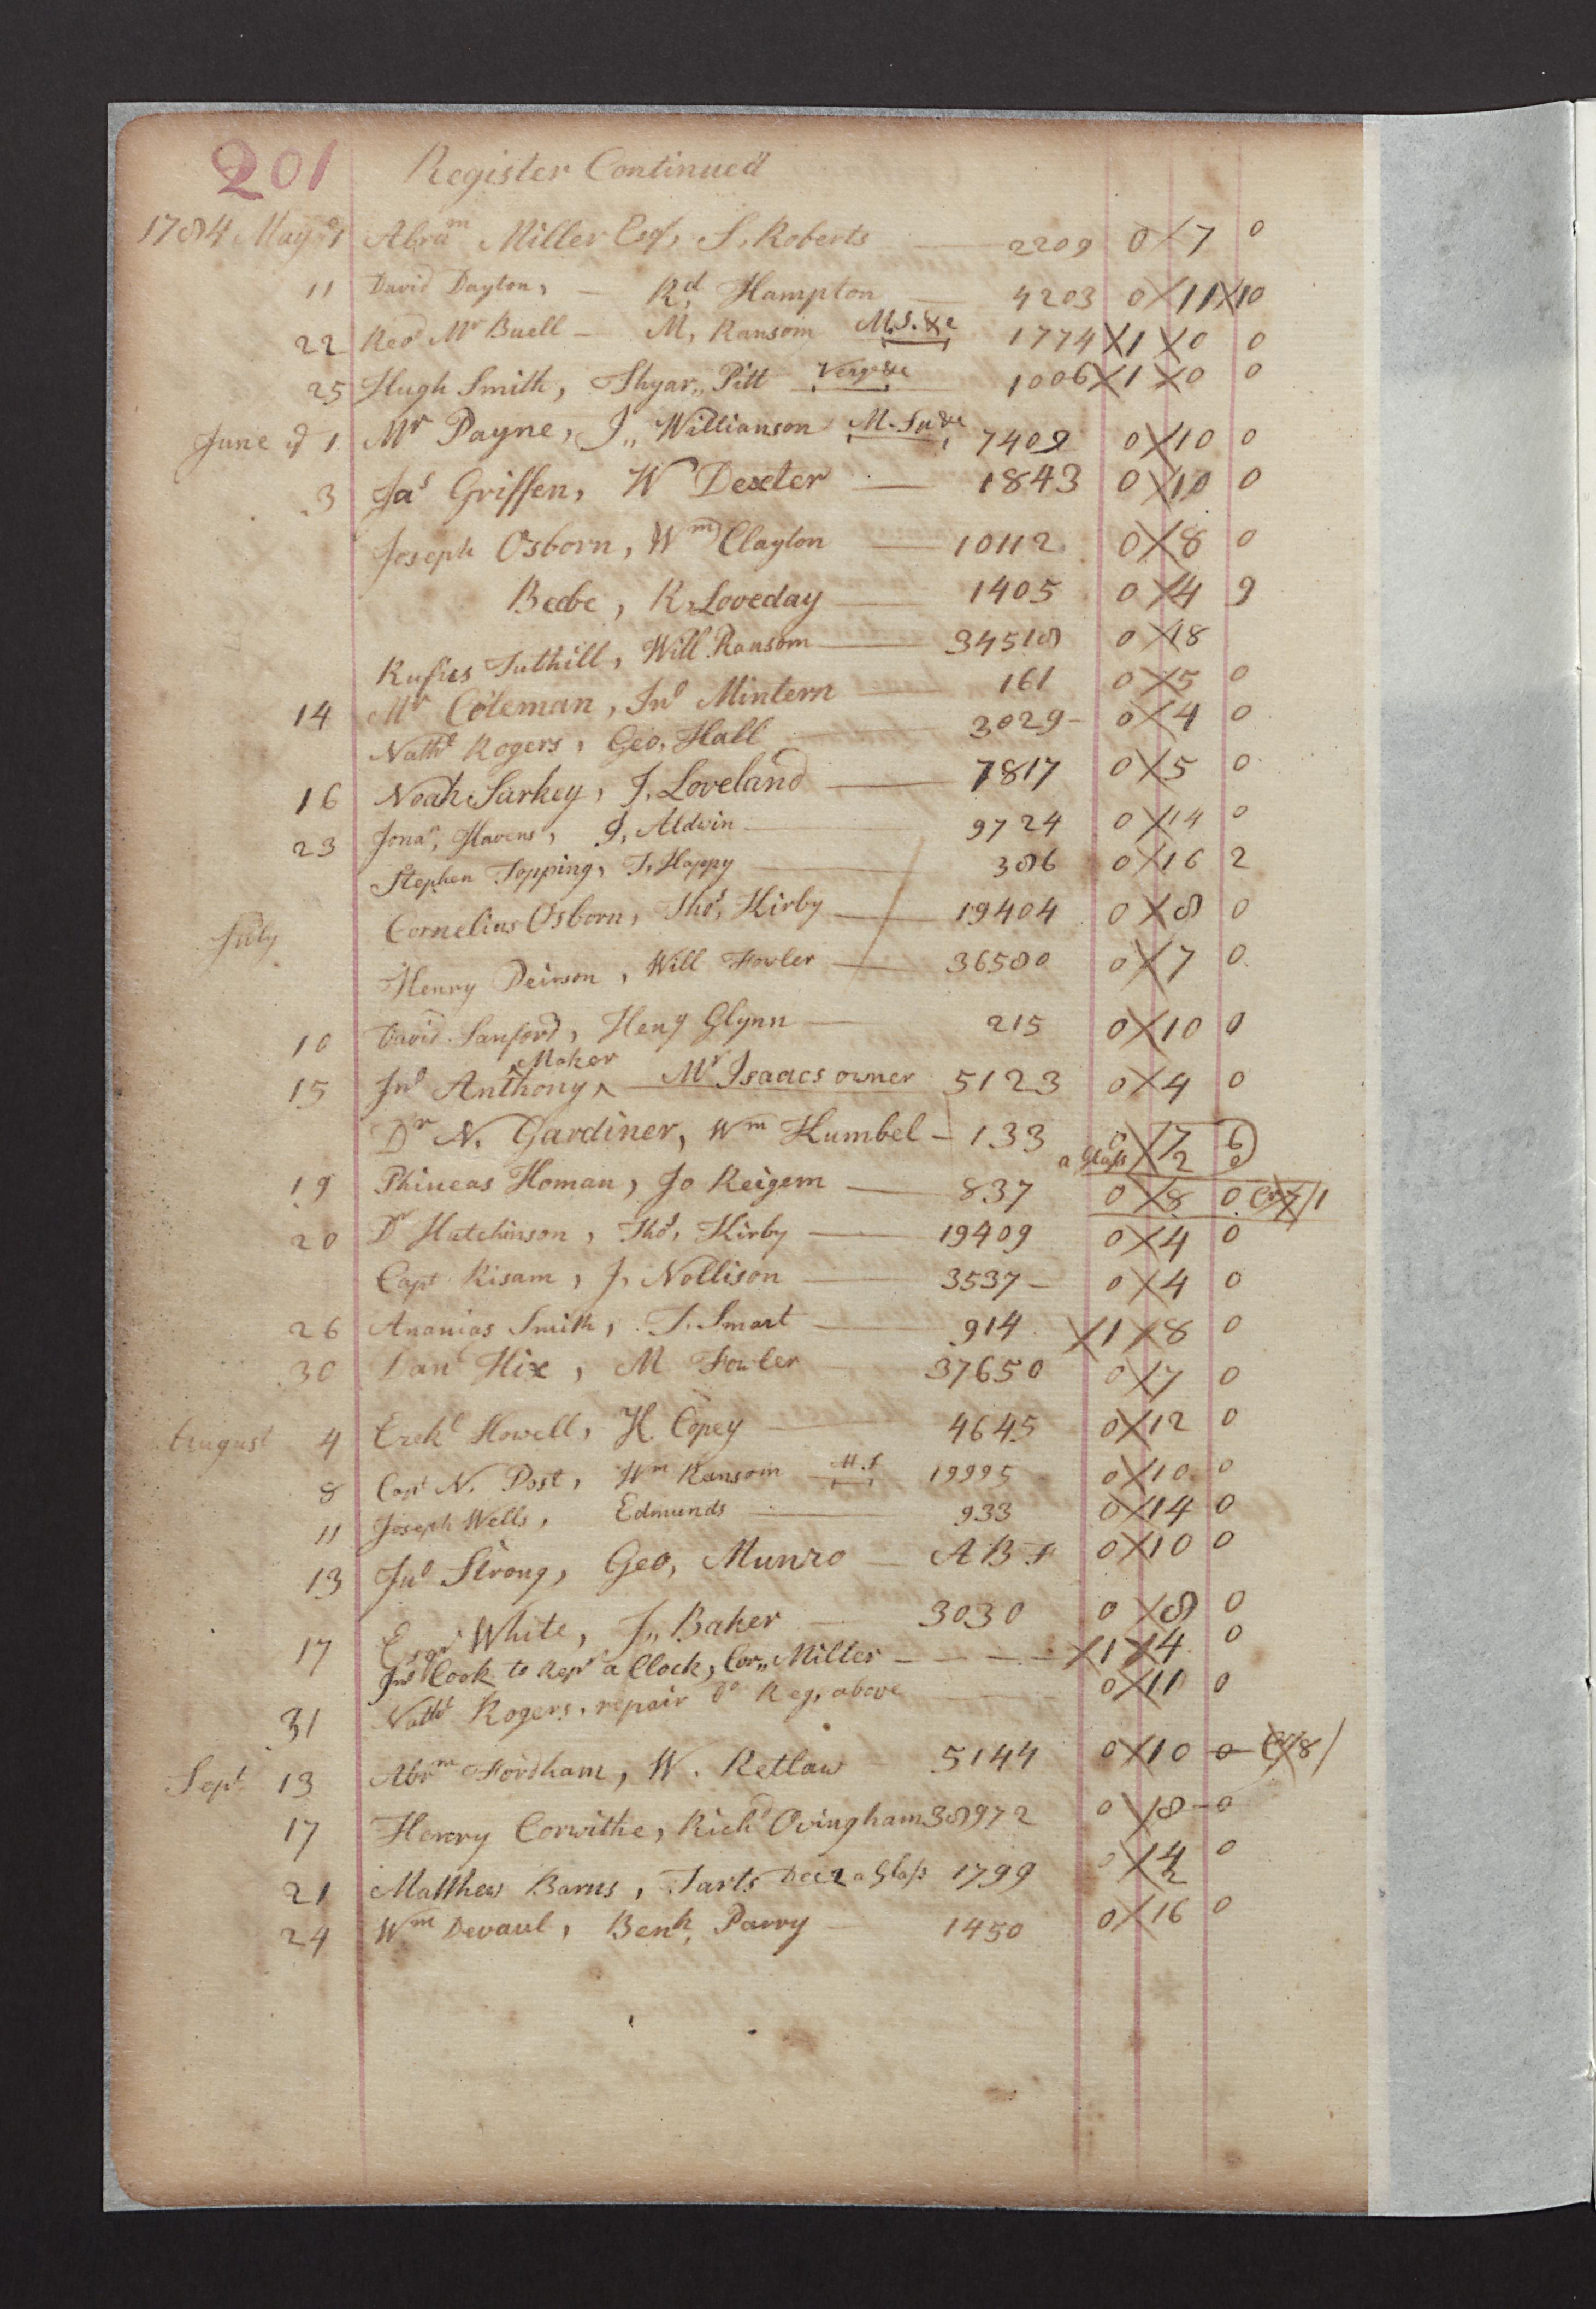 201 Register Continued
1784 May Abram Miller Esqr, S. Roberts 2209 0 7 0
11 David Dayton, Rd, Hampton 4203 0 11 10
22 Revd Mr Buell M, Ransom M.S. &c 1774 1 0 0
25 Hugh Smith, Thyar,, Pitt Verge &c 1006 1 0 0
June 1 Mr Payne, J,, Willianson 7409 0 10 0
3 Jas Griffen, W Dexter 1843 0 10 0
Joseph Osborn, Wm Clayton 10112 0 8 0
Beebe, R, Loveday 1405 0 4 9
Rufus Tuthill, Will Ransom 34518 0 18
14 Mr Coleman, Jno Mintern 161 0 5 0
Nathl Rogers, Geo, Hall 3029 0 4 0
16 Noah Sarkey, J, Loveland 7817 0 5 0
23 Jonan, Havens, J, Aldwin 9724 0 14 0
Stephen Topping, T, Happy 386 0 16 2
Cornelius Osborn, Thos, Kirby 19404 0 8 0
July
Henry Peirson, Will Fowler 36580 0 7 0
10 David Sanford, Heny Glynn 215 0 10 0
Maker
15 Jno Anthony ^ Mr Isaacs owner 5123 0 4 0
Dr N. Gardiner, Wm Humbel 133 0 7 6
a Glass 2 0
19 Phineas Homan, Jo Reigem 837 0 8 0
20 Dr Hutchinson, Thos, Kirby 19409 0 4 0
Capt Risam, J, Nollison 3537 0 4 0
26 Ananias Smith, T. Smart 914 1 8 0
30 Danl Hix, M Fowler 37650 0 7 0
August 4 Ezekl Howell, H. Copey 4645 0 12 0
8 Capt N. Post, Wm Ransom M.S 19995 0 10 0
11 Joseph Wells, Edmunds 933 0 14 0
13 Jno Strong, Geo, Munro A B F 0 10 0
17 Esqr White, J,, Baker 3030 0 8 0
Jno Cook to Repr a Clock, Cor,, Miller 1 4 0
31 Nathl Rogers, repair do Reg, above 0 11 0
Sept 13 Abrm Fordham, W. Retlaw 5144 0 10 0
17 Henry Corwithe, Richd Ovingham 38972 0 8 0
21 Matthew Barns, Tarts a Glass 1799 0 14 0
2
24 Wm Devaul, Benh, Parry 1450 0 16 0